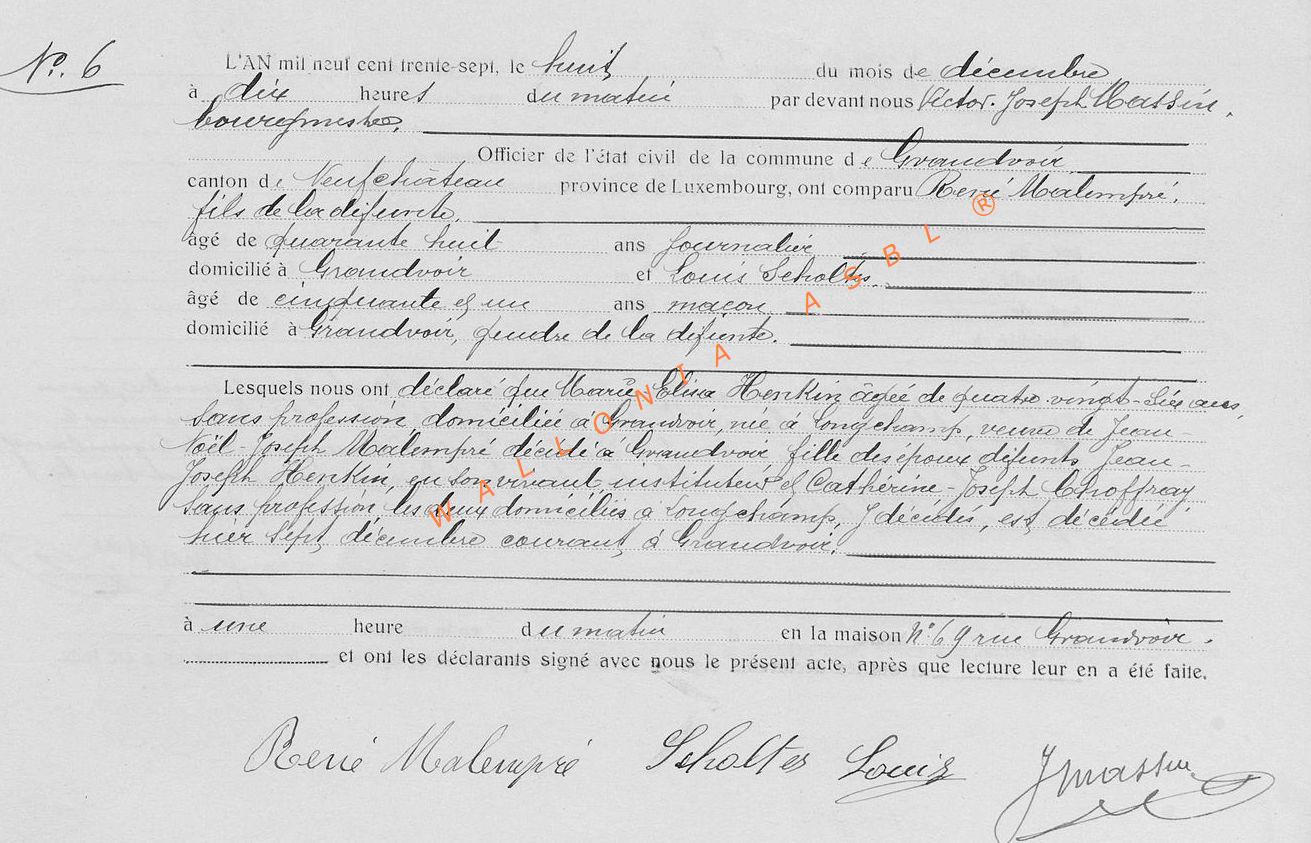 N°. 6
L'AN mil neuf cent trente-sept, le huit du mois de décembre
à dix heures du matin par devant nous Victor-Joseph Massin,
bourgmestre,
Officier de l'état civil de la commune de Grandvoir
canton de Neufchâteau province de Luxembourg, ont comparu René Malempré,
fils de la défunte,
âgé de quarante huit ans Journalier
domicilié à Grandvoir et Louis Scholtes,
âgé de cinquante et un ans maçon
domicilié à Grandvoir, gendre de la défunte.
Lesquels nous ont déclaré que Marie Elisa Henkin âgée de quatre-vingt-six ans,
sans profession, domiciliée à Grandvoir, née à Longchamp, veuve de Jean-
Noël-Joseph Malempré décédé à Grandvoir fille des époux défunts, Jean-
Joseph Henkin, en son vivant instituteur et Cathérine-Joseph Choffray
sans profession les deux domiciliés à Longchamp, y décédés, est décédée
hier sept décembre courant à Grandvoir.
à une heure du matin en la maison N° 69 rue Grandvoir.
et ont les déclarants signé avec nous le présent acte, après que lecture leur en a été faite.
René Malempré Scholtes Louis J Massin
WALLONIA ASBL ®